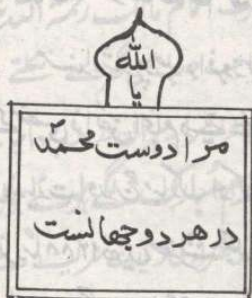 الله
یا
مرا دوست محمّد
در هر دو جهانست